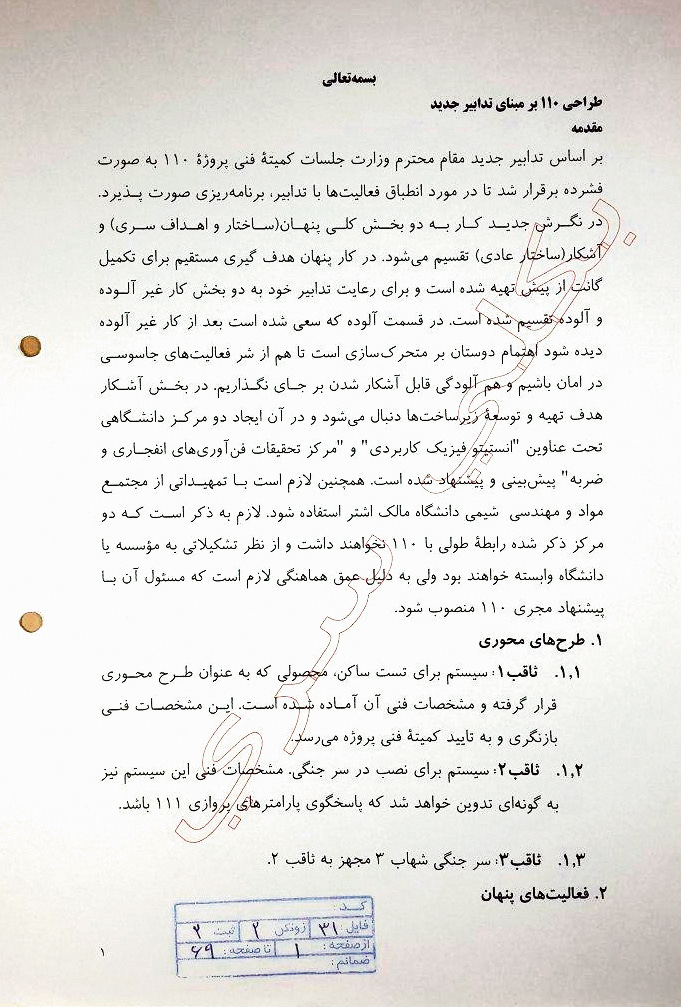 بسمه‌تعالی
طراحی ۱۱۰ بر مبنای تدابیر جدید
مقدمه
بر اساس تدابیر جدید مقام محترم وزارت جلسات کمیتهٔ فنی پروژهٔ ۱۱۰ به صورت
فشرده برقرار شد تا در مورد انطباق فعالیت‌ها با تدابیر، برنامه‌ریزی صورت پذیرد.
در نگرش جدید کار به دو بخش کلی پنهان(ساختار و اهداف سری) و
آشکار(ساختار عادی) تقسیم می‌شود. در کار پنهان هدف گیری مستقیم برای تکمیل
گانت از پیش تهیه شده است و برای رعایت تدابیر خود به دو بخش کار غیر آلوده
و آلوده تقسیم شده است. در قسمت آلوده که سعی شده است بعد از کار غیر آلوده
دیده شود اهتمام دوستان بر متحرک‌سازی است تا هم از شر فعالیت‌های جاسوسی
در امان باشیم و هم آلودگی قابل آشکار شدن بر جای نگذاریم. در بخش آشکار
هدف تهیه و توسعهٔ زیرساخت‌ها دنبال می‌شود و در آن ایجاد دو مرکز دانشگاهی
تحت عناوین "انستیتو فیزیک کاربردی" و "مرکز تحقیقات فن‌آوری‌های انفجاری و
ضربه" پیش‌بینی و پیشنهاد شده است. همچنین لازم است با تمهیداتی از مجتمع
مواد و مهندسی شیمی دانشگاه مالک اشتر استفاده شود. لازم به ذکر است که دو
مرکز ذکر شده رابطهٔ طولی با ۱۱۰ نخواهند داشت و از نظر تشکیلاتی به مؤسسه یا
دانشگاه وابسته خواهند بود ولی به دلیل عمق هماهنگی لازم است که مسئول آن با
پیشنهاد مجری ۱۱۰ منصوب شود.
۱. طرح‌های محوری
۱,۱. ثاقب۱: سیستم برای تست ساکن، محصولی که به عنوان طرح محوری
قرار گرفته و مشخصات فنی آن آماده شده است. این مشخصات فنی
بازنگری و به تایید کمیتهٔ فنی پروژه می‌رسد.
۱,۲. ثاقب۲: سیستم برای نصب در سر جنگی. مشخصات فنی این سیستم نیز
به گونه‌ای تدوین خواهد شد که پاسخگوی پارامترهای پروازی ۱۱۱ باشد.
۱,۳. ثاقب۳: سر جنگی شهاب ۳ مجهز به ثاقب ۲.
۲. فعالیت‌های پنهان
کد:
فایل: ۳۱ زونکن ۲ ثبت ۲
از صفحه: ۱ تا صفحه: ۶۹
ضمائم:
۱
بکلی سری